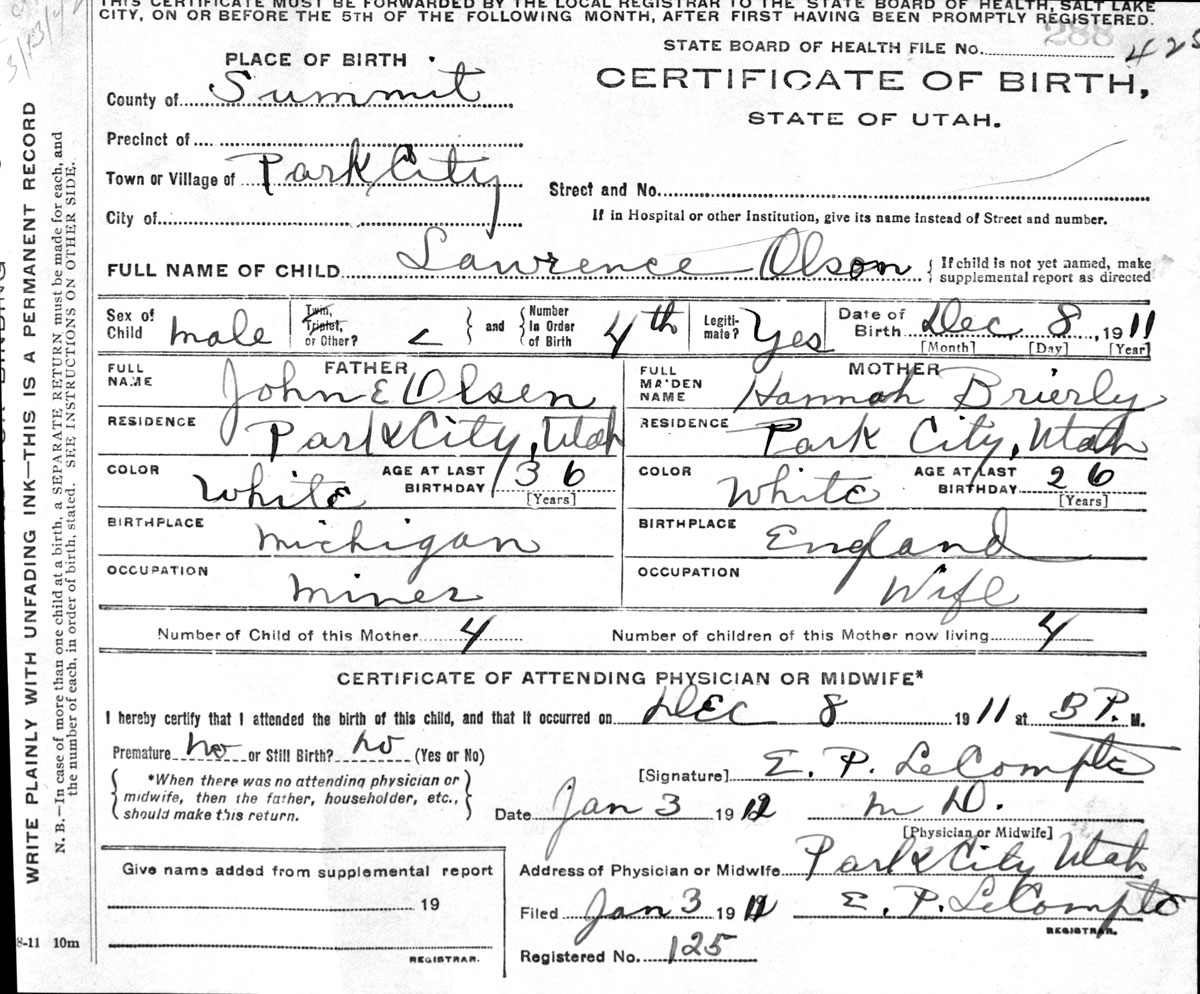 THIS CERTIFICATE MUST BE FORWARDED BY THE LOCAL REGISTRAR TO THE STATE BOARD OF HEALTH, SALT LAKE
CITY, ON OR BEFORE THE 5TH OF THE FOLLOWING MONTH, AFTER FIRST HAVING BEEN PROMPTLY REGISTERED.
STATE BOARD OF HEALTH FILE No. 288 425
PLACE OF BIRTH
CERTIFICATE OF BIRTH,
STATE OF UTAH.
County of Summit
Precinct of
Town or Village of Park City
Street and No.
City of
If in Hospital or other Institution, give its name instead of Street and number.
FULL NAME OF CHILD Lawrence Olson { If child is not yet named, make
supplemental report as directed
Sex of Child male Twin, Triplet, or Other? } and { Number In Order of Birth 4th Legiti-mate? Yes Date of Birth Dec 8, 1911
[Month] [Day] [Year]
FATHER MOTHER
FULL NAME John E Olsen FULL MAIDEN NAME Hannah Brierly
RESIDENCE Park City, Utah RESIDENCE Park City, Utah
COLOR White AGE AT LAST BIRTHDAY 36 [Years] COLOR White AGE AT LAST BIRTHDAY 26 [Years]
BIRTHPLACE Michigan BIRTHPLACE England
OCCUPATION Miner OCCUPATION Wife
Number of Child of this Mother 4 Number of children of this Mother now living 4
CERTIFICATE OF ATTENDING PHYSICIAN OR MIDWIFE*
I hereby certify that I attended the birth of this child, and that it occurred on Dec 8 1911 at P. M.
Premature No or Still Birth? No (Yes or No)
[Signature] E. P. LeCompte
{ *When there was no attending physician or
midwife, then the father, householder, etc.,
should make this return. }
Date Jan 3 1912 M D.
[Physician or Midwife]
Address of Physician or Midwife Park City Utah
Filed Jan 3 1912 E. P. LeCompte
REGISTRAR.
Registered No. 125
Give name added from supplemental report
19
REGISTRAR.
8-11 10m
WRITE PLAINLY WITH UNFADING INK—THIS IS A PERMANENT RECORD
N. B.—In case of more than one child at a birth, a SEPARATE RETURN must be made for each, and
the number of each, in order of birth, stated. SEE INSTRUCTIONS ON OTHER SIDE.